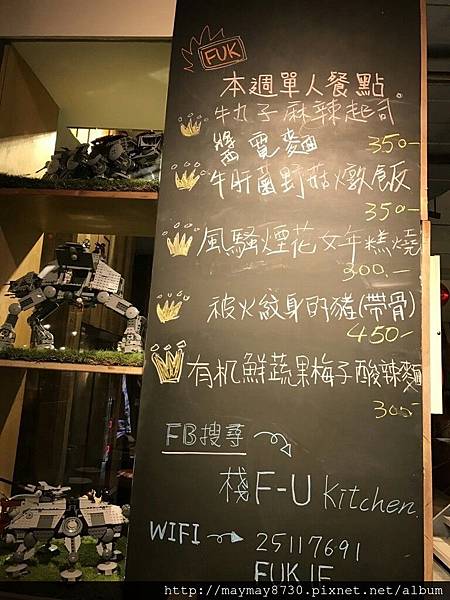 FUK
本週單人餐點。
牛丸子麻辣起司
醬寬麵
350-
牛肝菌野菇燉飯
350-
風騷煙花女年糕燒
300.-
被火紋身的豬(帶骨)
450-
有机鮮蔬果梅子酸辣麵
300-
FB搜尋
棧F-U Kitchen.
WIFI → 25117691
http://maymay8730.pixnet.net/album